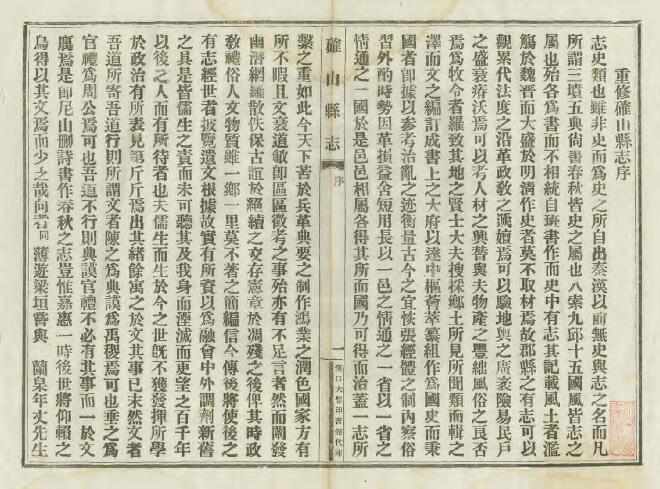 重修確山縣志序
志史類也雖非史而為史之所自出秦漢以前無史與志之名而凡
所謂三墳五典尚書春秋皆史之屬也八索九邱十五國風皆志之
屬也殆各為書而不相統自班書作而史中有志其記載風土者濫
觴於魏晉而大盛於明清作史者莫不取材焉故郡縣之有志可以
觀累代法度之沿革政敎之遞嬗焉可以驗地輿之廣袤險易民戶
之盛衰瘠沃焉可以考人材之興替與夫物產之豐絀風俗之良否
焉為牧令者羅致其地之賢士大夫搜採鄉土所見所聞類而輯之
澤而文之編訂成書上之大府以達中樞薈萃纂組作為國史而秉
國者卽據以參考治亂之迹衡量古今之宜恢張經體之制內察俗
習外酌時勢因革損益舍短用長以一邑之情通之一省以一省之
情通之一國於是邑邑相屬各得其所而國乃可得而治蓋一志所
確山縣志
序
一
漢口大聖印書館代印
繫之重如此今天下苦於兵革典要之制作鴻業之潤色國家方有
所不暇且文衰道敝卽區區徵考之事殆亦有不足言者然而闡發
幽潛網羅散佚保古誼於絕續之交存憲章於凋殘之後俾其時政
敎禮俗人文物質雖一鄉一里莫不著之簡編信今傳後將使後之
有志經世者披覽遺文根據故實有所資以為融會中外調劑新舊
之具是皆儒生之責而未可聽其及我身而湮滅而更望之百千年
以後之人而有所待者也夫儒生而生於今之世旣不獲發揮所學
於政治有所表見第斤斤焉出其緒餘寓之於文其事已末然文者
吾道所寄吾道行則所謂文者陳之為典謨為禹稷焉可也垂之為
官禮為周公焉可也吾道不行則典謨官禮不必有其事而一於文
寓焉是卽尼山刪詩書作春秋之志豈惟嘉惠一時後世將仰賴之
烏得以其文焉而少之哉向者同薄遊梁垣嘗與蘭泉年丈先生